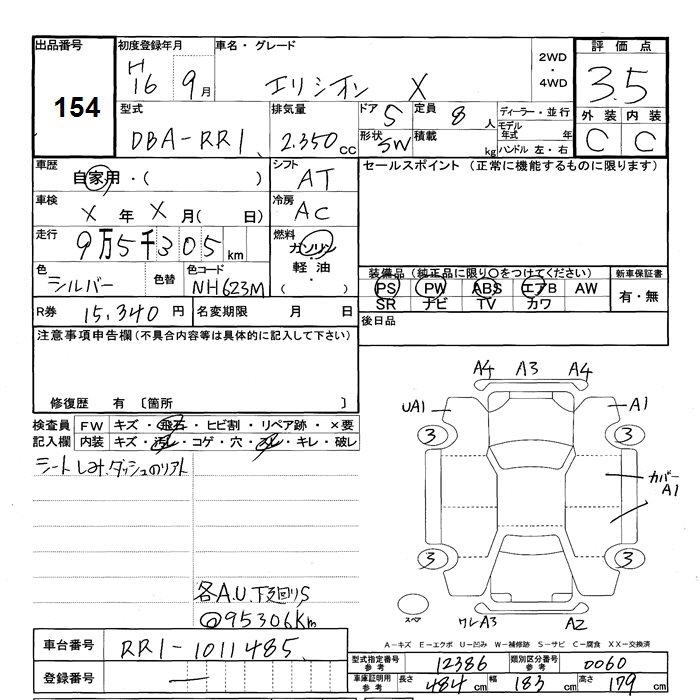 出品番号 初度登録年月 車名・グレード 2WD・4WD 評価点
154 H16 9月 エリシオン X 3.5
型式 排気量 ドア 5 定員 8人 ディーラー・並行 外装 内装
DBA-RR1 2.350cc 形状 SW 積載 kg モデル年式 年 C C
ハンドル 左・右
車歴 シフト セールスポイント (正常に機能するものに限ります)
自家用・( ) AT
車検 冷房
X 年 X 月( 日) AC
走行 燃料
9万5千305km ガソリン・軽油・( )
色 色替 色コード 装備品 (純正品に限り○をつけてください) 新車保証書
シルバー NH623M PS PW ABS エアB AW 有・無
SR ナビ TV カワ
R券 15,340円 名変期限 月 日 後日品
注意事項申告欄(不具合内容等は具体的に記入して下さい)
修復歴 有 〔箇所
検査員記入欄 FW キズ・飛石・ヒビ割・リペア跡・×要
内装 キズ・汚レ・コゲ・穴・スレ・キレ・破レ
シートしみ.ダッシュ
A4 A3 A4
UA1 A1
3 3
カバー A1
3 3
スペア ワレA3 A2
各A.U.下廻りS
@95306Km
A-キズ E-エクボ U-凹み W-補修跡 S-サビ C-腐食 XX-交換済
車台番号 RR1-1011485
型式指定番号参考 12386 類別区分番号参考 0060
登録番号 —
車庫証明用参考 長さ 484cm 幅 183cm 高さ 179cm